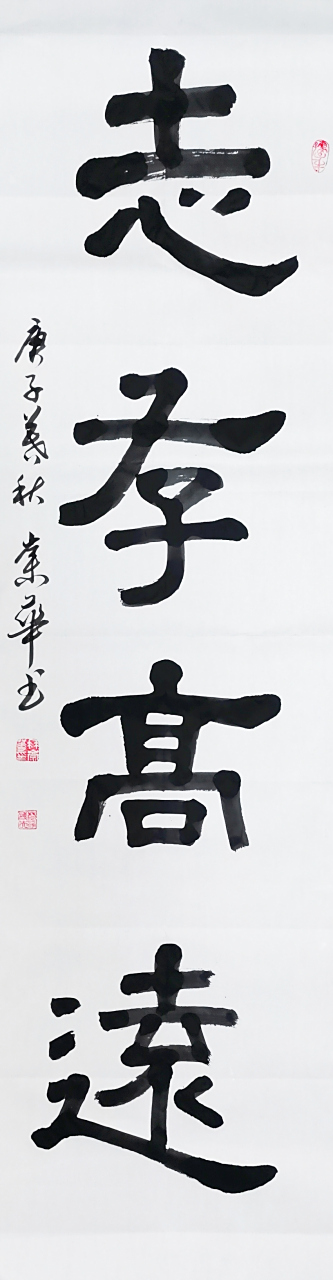 志存高遠
庚子暮秋 業華书